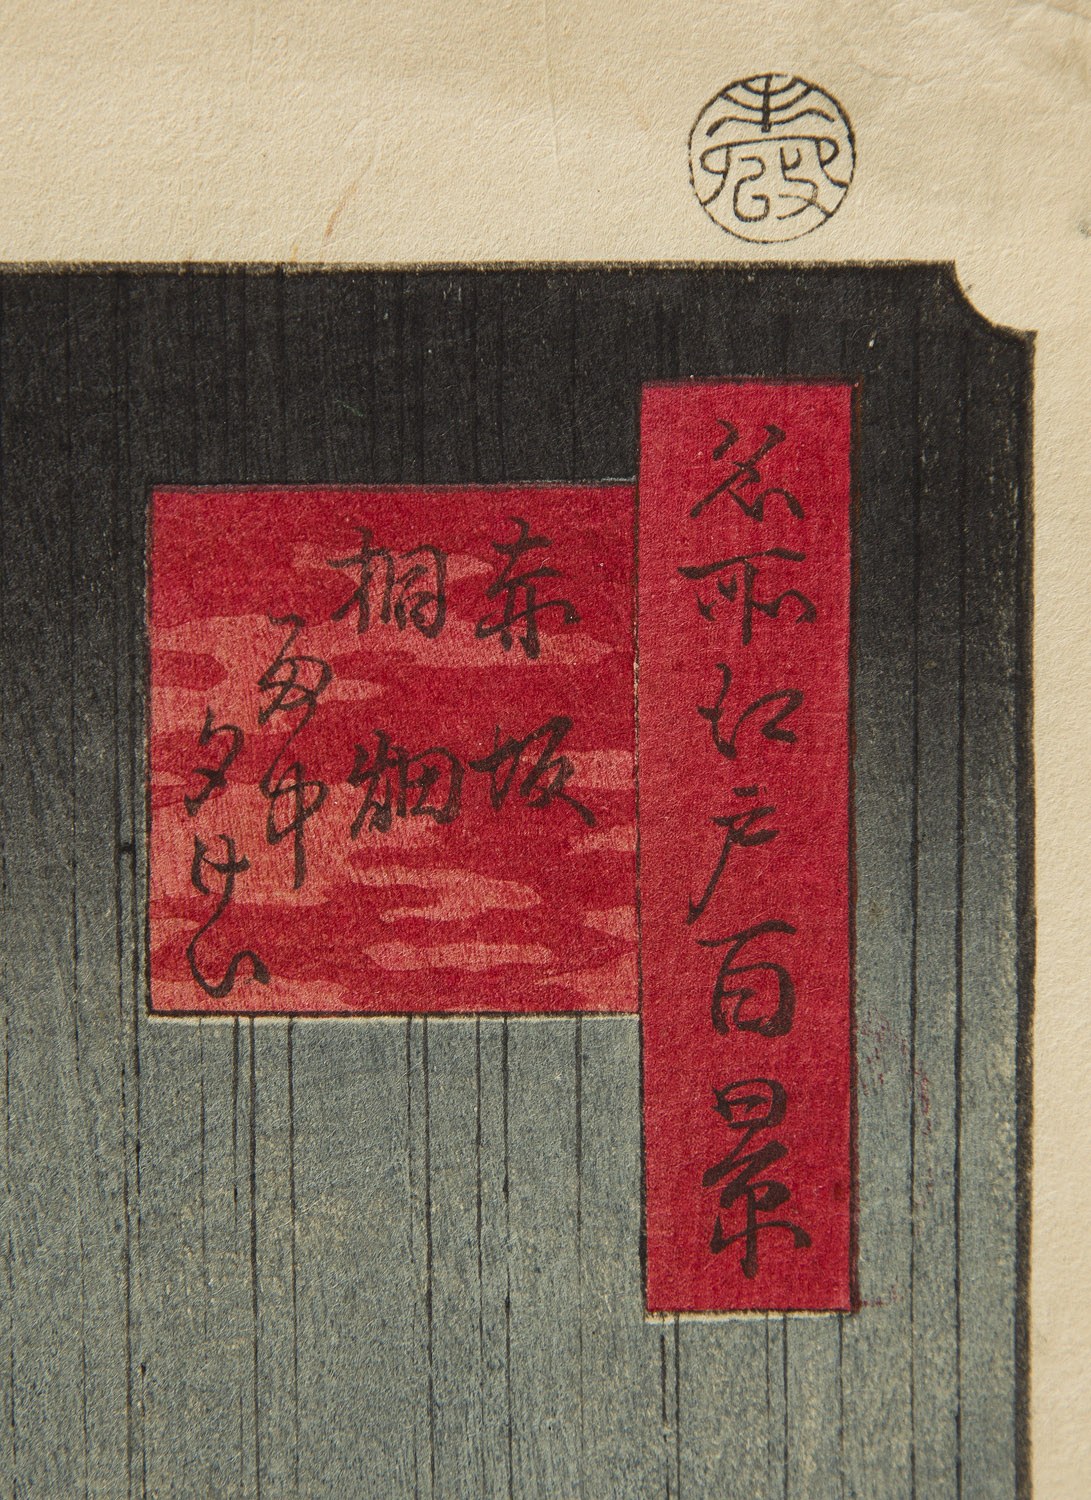 名所江戸百景
赤坂
桐畑
雨中
夕けい